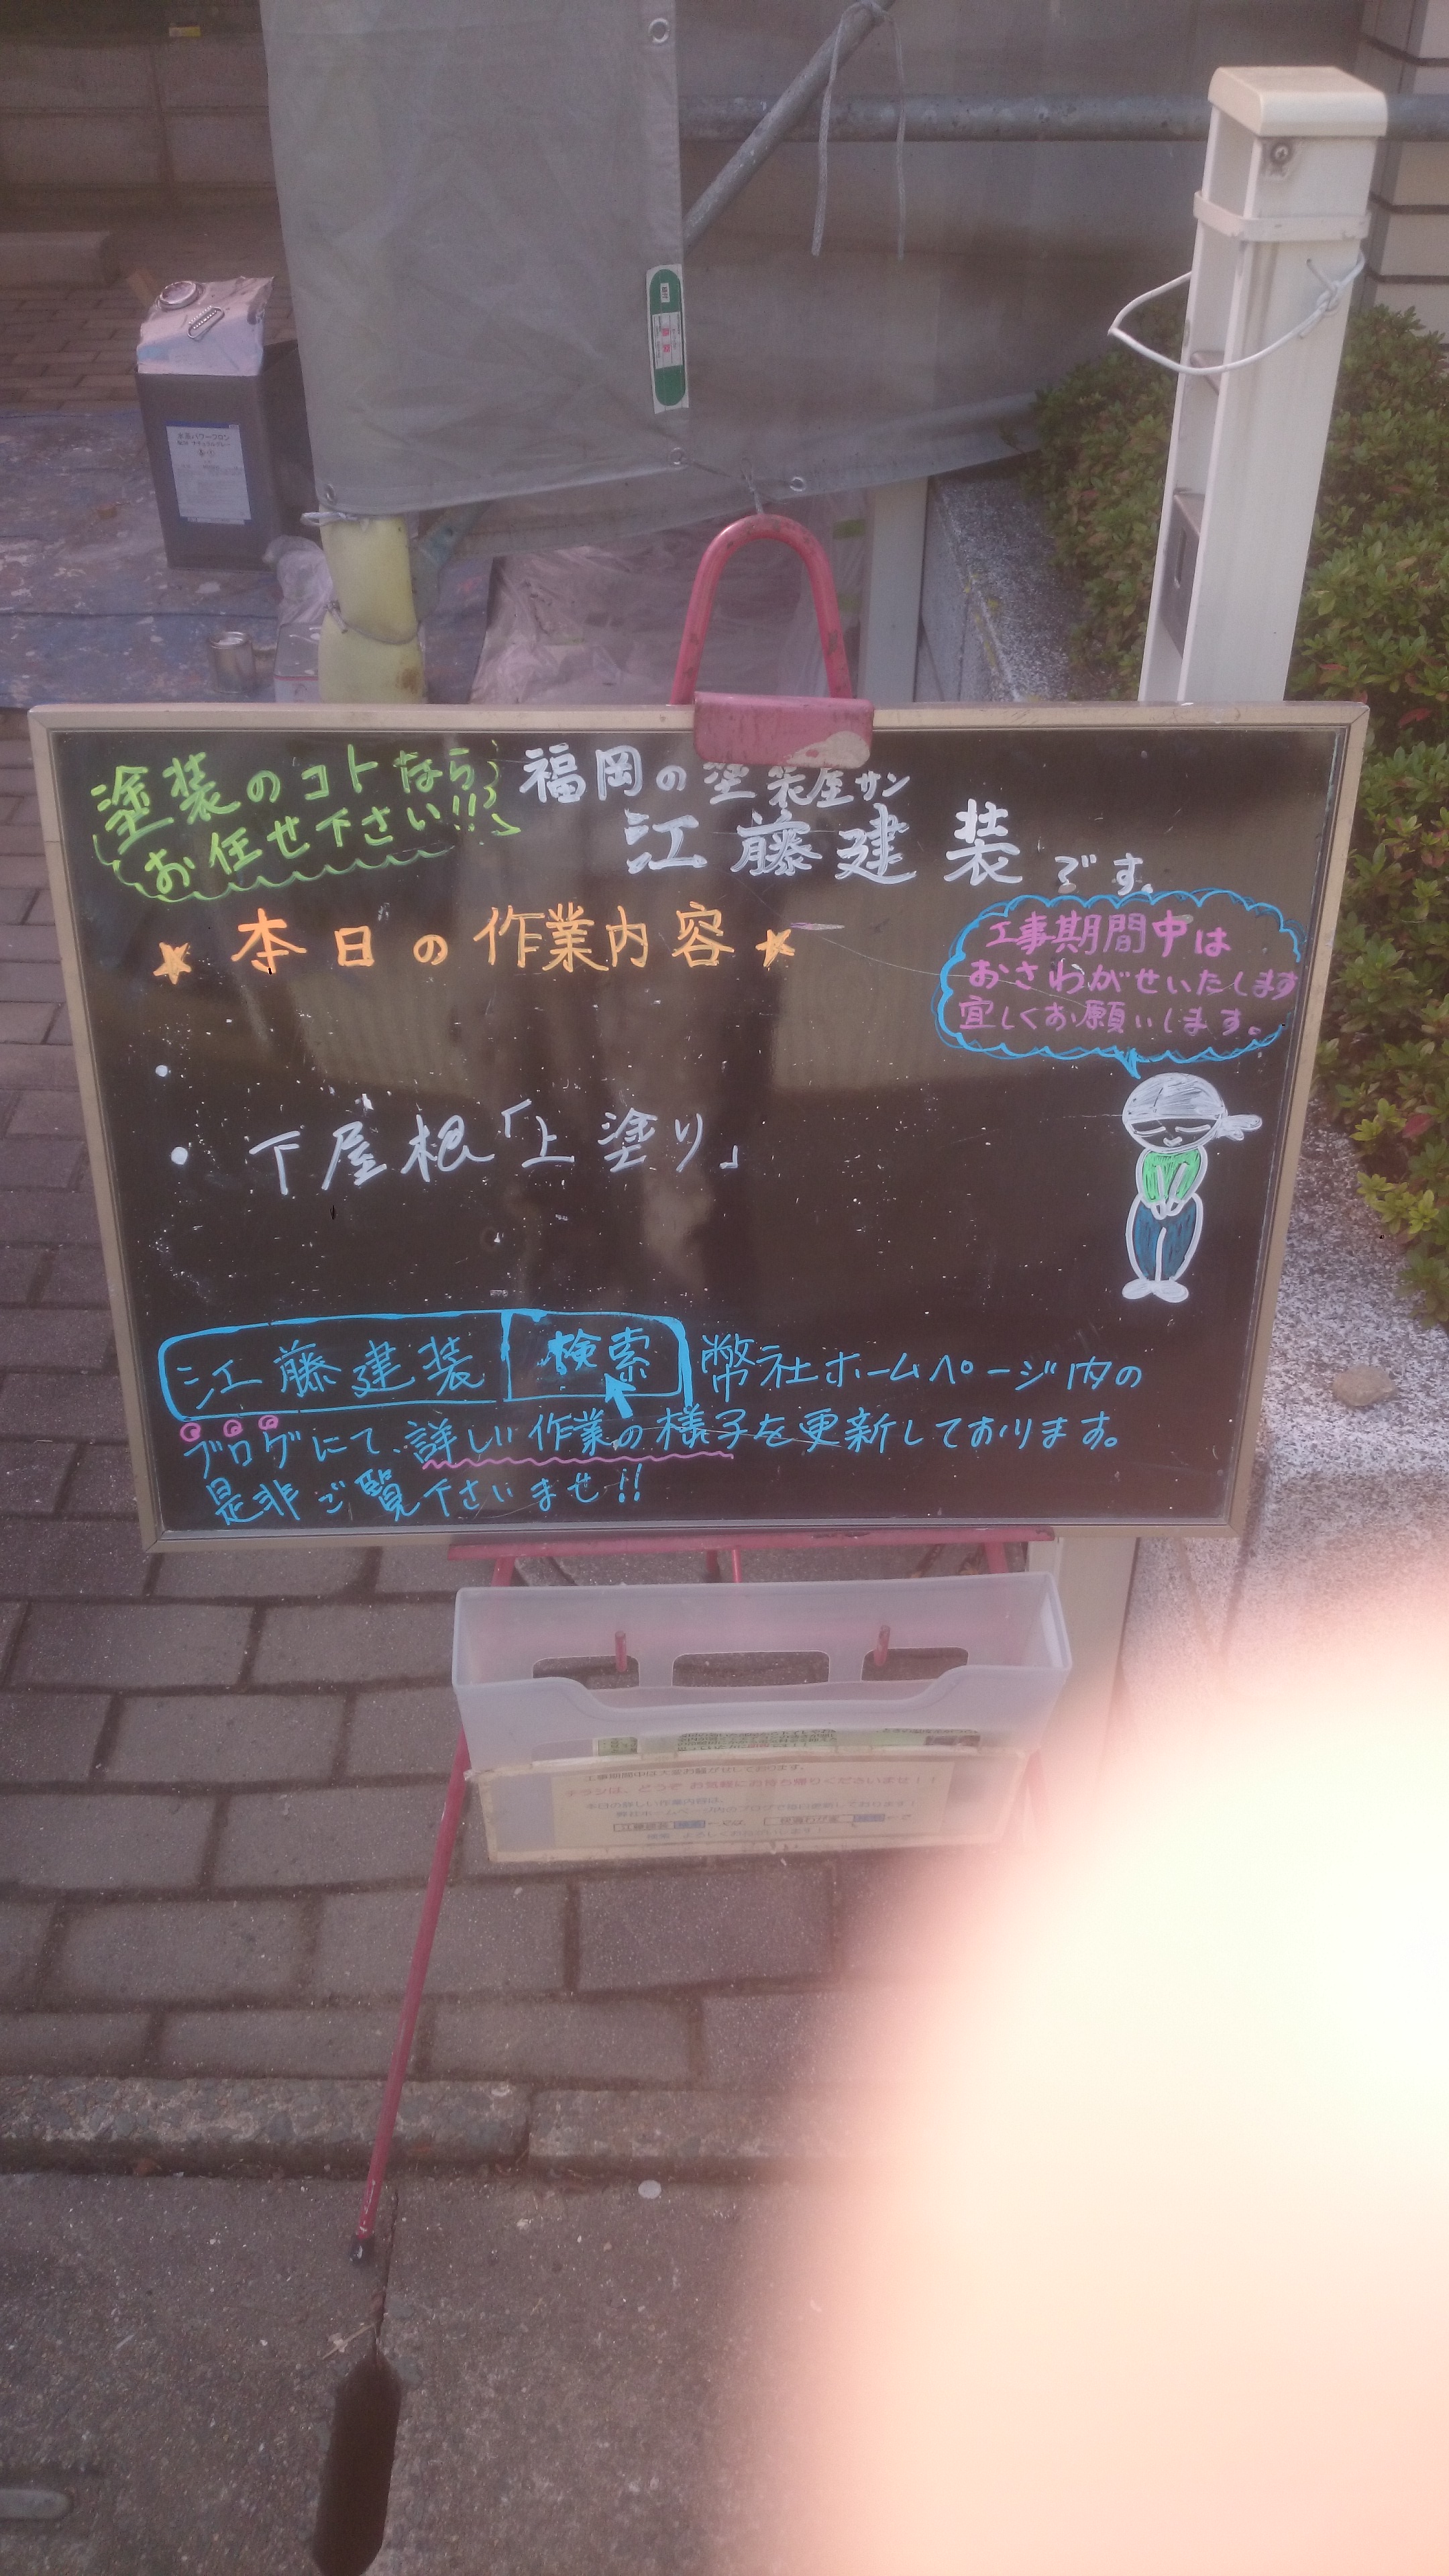 塗装のコトなら
お任せ下さい!!
福岡の塗装屋サン
江藤建装です。
★本日の作業内容★
工事期間中は
おさわがせいたします
宜しくお願いします。
・
・下屋根「上塗り」
江藤建装 検索 弊社ホームページ内の
ブログにて、詳しい作業の様子を更新しております。
是非ご覧下さいませ!!
水系パワーフロン
工事期間中は大変お騒がせしております。
チラシは、どうぞ お気軽にお持ち帰りくださいませ!!
本日の詳しい作業内容は、
弊社ホームページ内のブログで毎日更新しております!
江藤建装